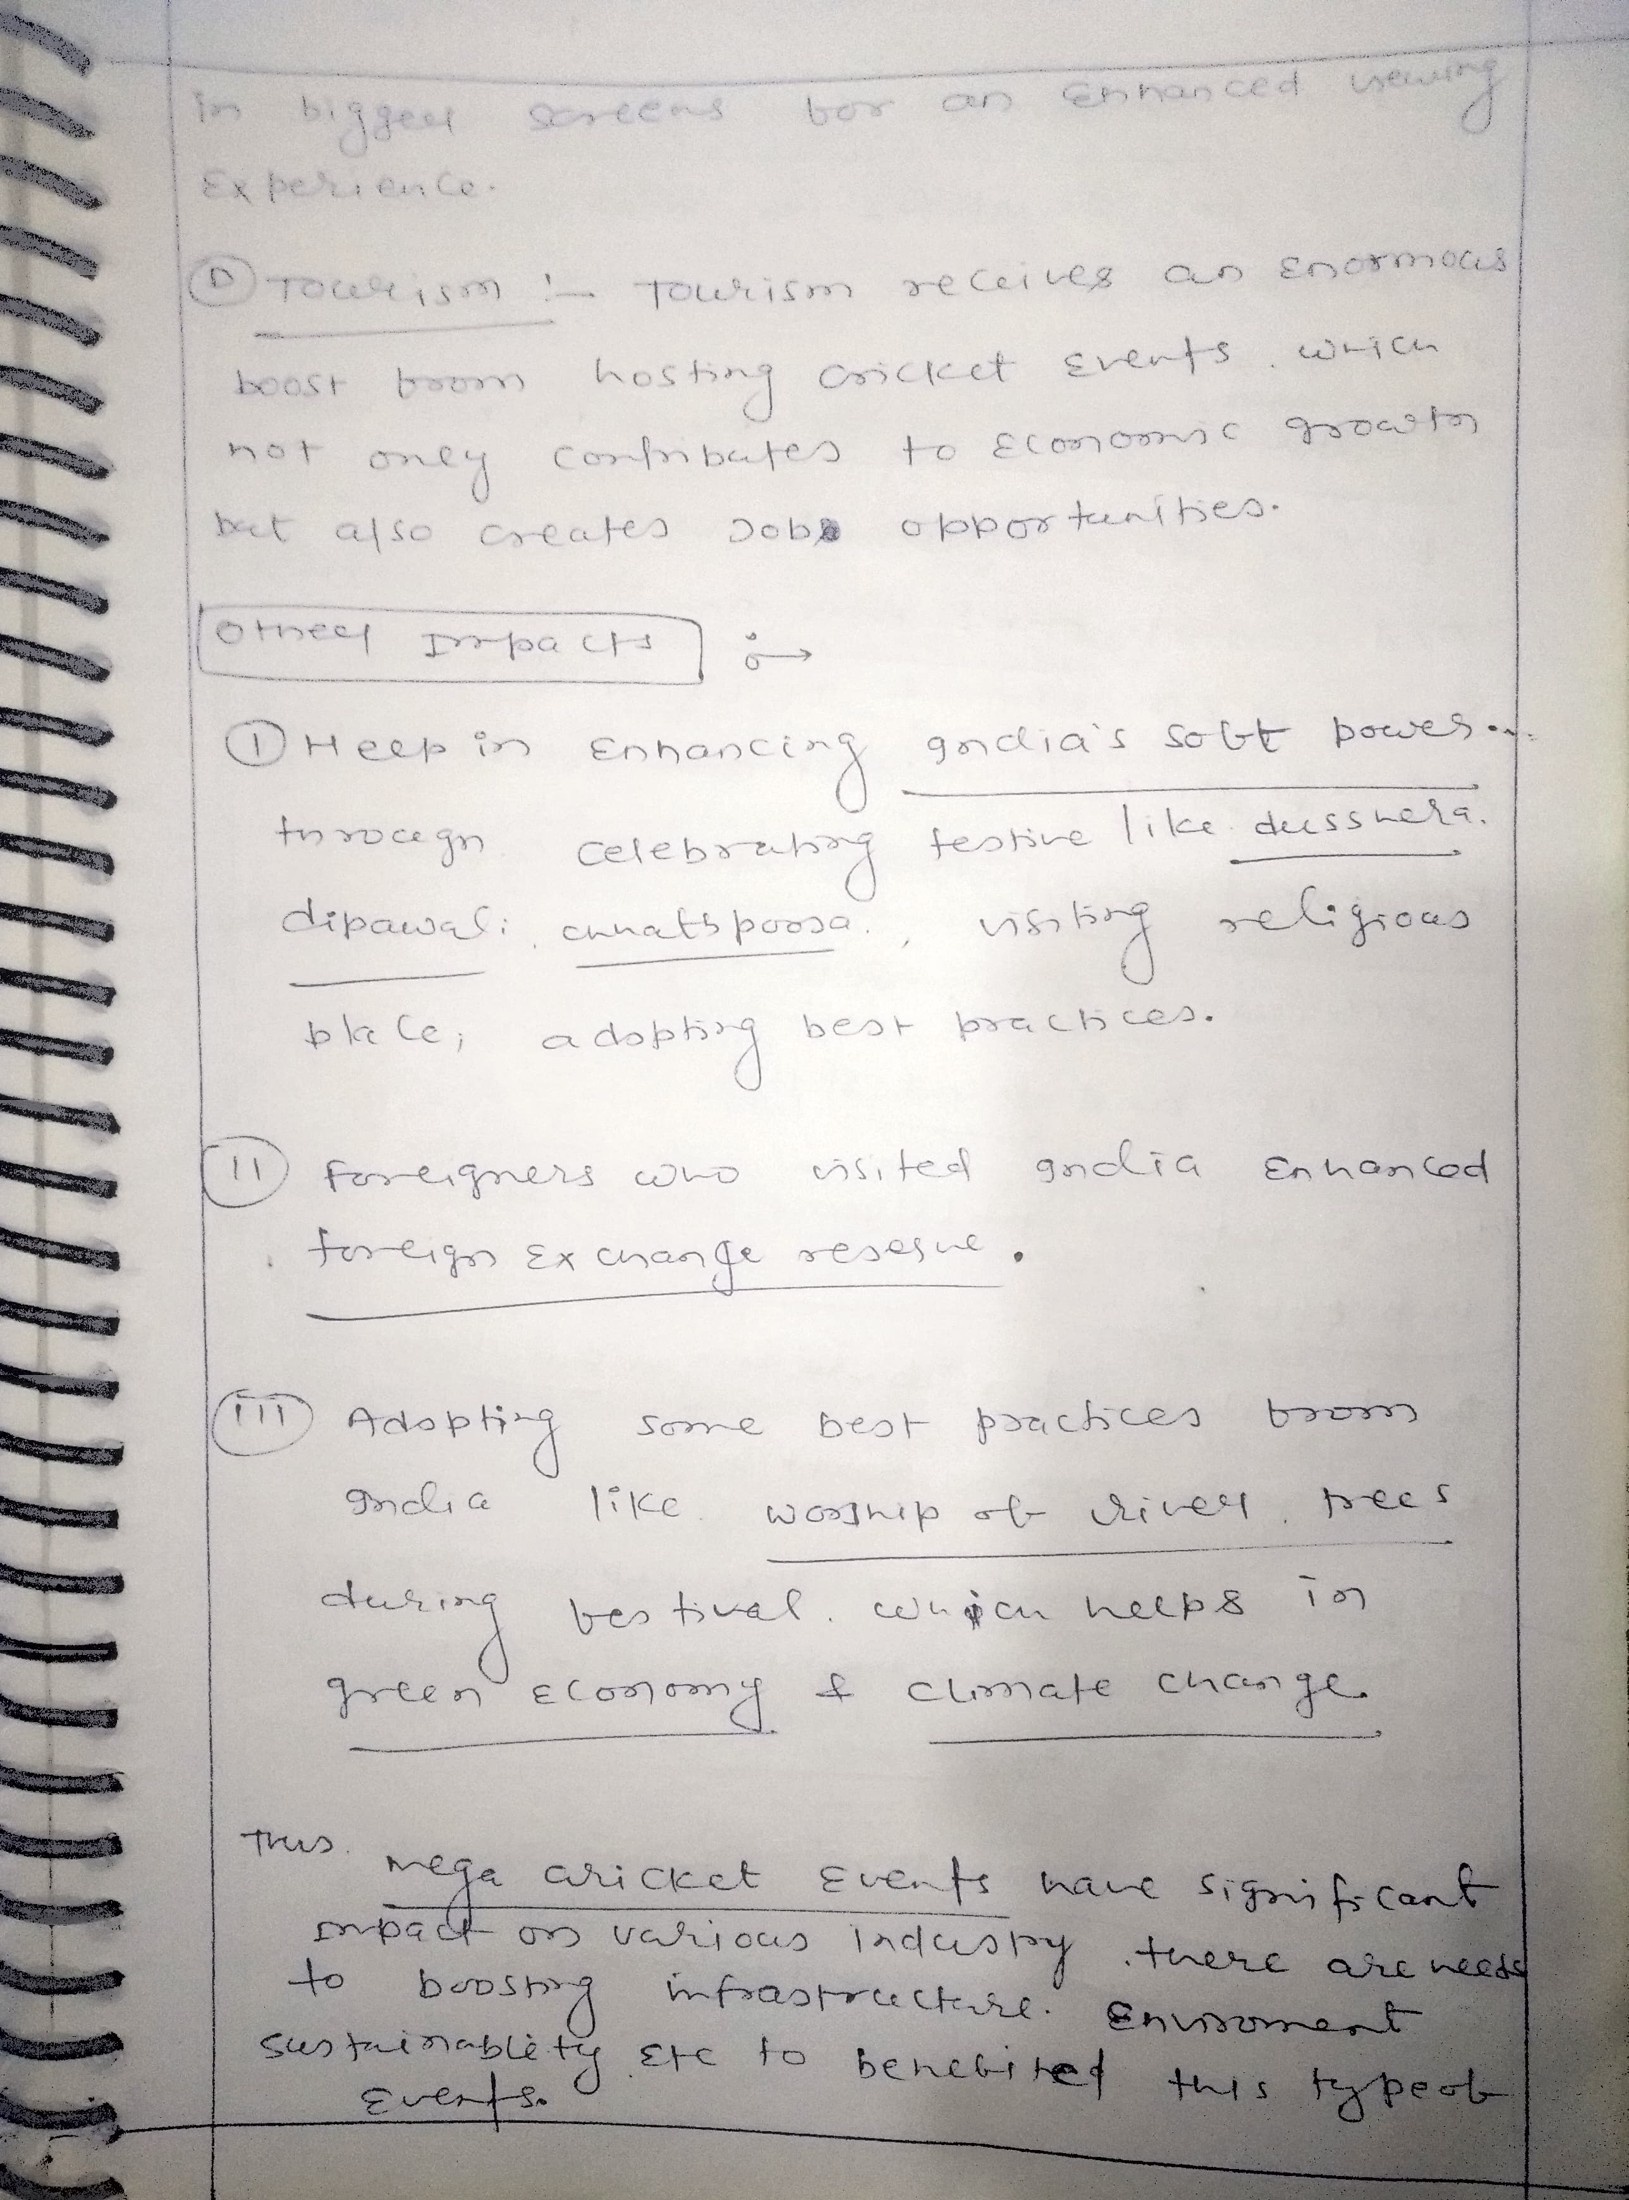 in bigger screens for an Enhanced viewing
Experience.
D Tourism :- Tourism receives an Enormous
boost from hosting cricket Events, which
not only contributes to Economic growth
but also creates Job opportunities.
Other Impacts :→
I Help in Enhancing India's soft power
through celebrating festive like dusshera,
dipawali, chhathpooja, visiting religious
place, adopting best practices.
II foreigners who visited India Enhanced
foreign Exchange reserve.
III Adopting some best practices from
India like worship of river, trees
during festival, which helps in
green Economy & climate change.
Thus, Mega cricket Events have significant
impact on various industry, there are needs
to boosting infrastructure, Enviroment
sustainablety, Etc to benefited this type of
Events.